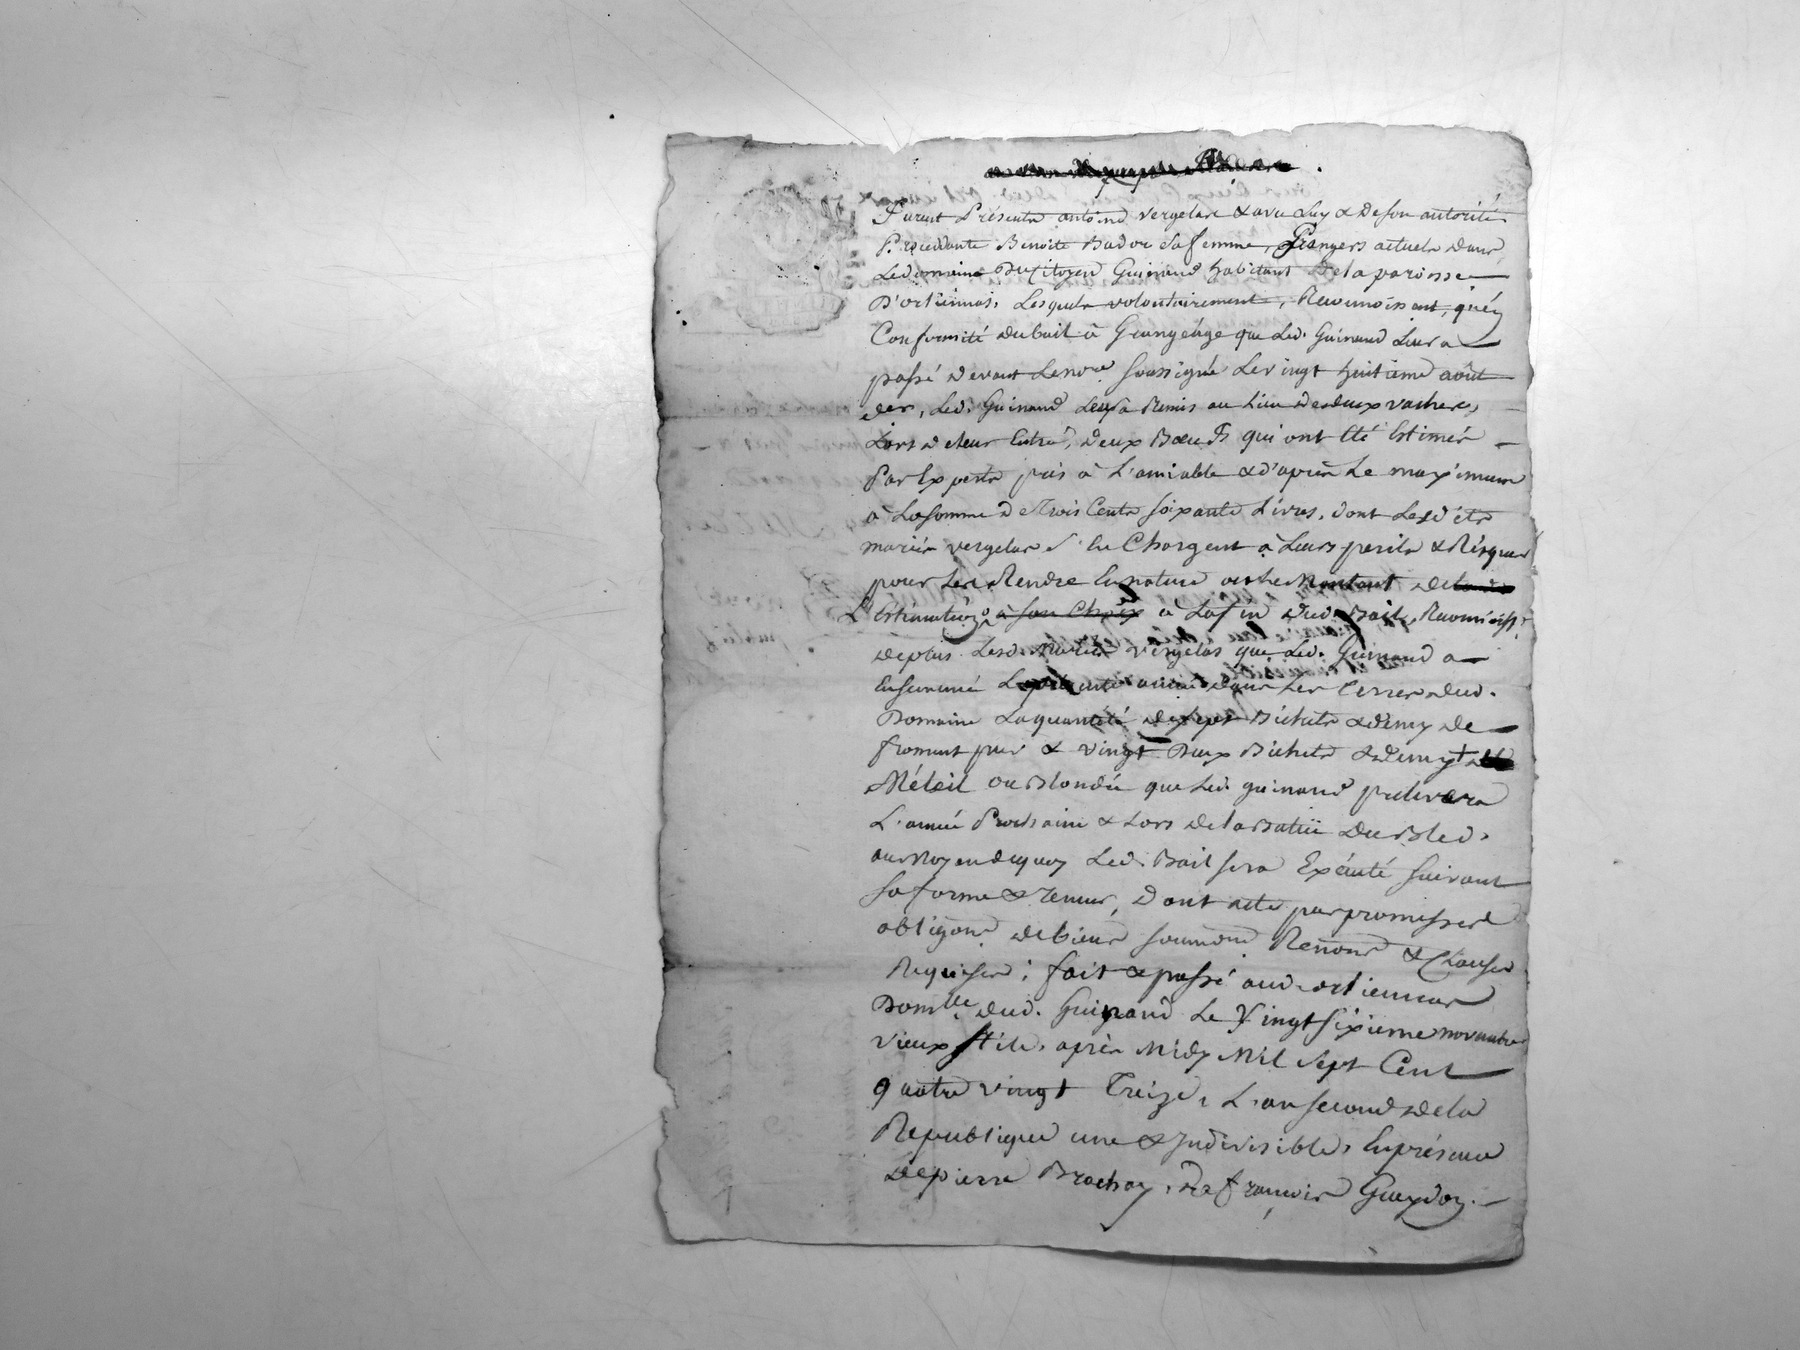 Furent Présents antoine vergelas & avec Luy & De son autorité
Procedante Benoite Badoc sa femme, Grangers actuels dans
Le Domaine Du Citoyen Guinand habitant De la paroisse
D'ortiennas, Lesquels volontairement, Reconnoissent, qu'en
Conformité du bail à Grangeage que Led. Guinand Leur a
passé devant Le nore. soussigné Le vingt huitieme août
der, Led. Guinand Leur a Remis au Lieu des deux vaches,
Lors de leur Entrée, deux Boeufs qui ont été Estimés
Par Experts pris à L'amiable & d'après Le maximum
à La somme de Trois Cents soixante Livres, dont Lesd. 
mariés vergelas s'en Chargent à Leurs perils & Risques
pour Les Rendre En nature ou Le Montant de
L'Estimation à son Choix à La fin dud. Bail, Reconnoiss.
deplus Lesd. Mariés vergelas que Led. Guinand a
Ensemencé La présente année dans Les Terres dud.
Domaine La quantité de sept Bichets & demy de
froment pur & vingt Deux Bichets & demy
Méteil ou Blondée que Led. guinand prelevera
L'année Prochaine & Lors de la Battüe du Bled,
au Moyen de quoy Led. Bail sera Exécuté suivant
sa forme & teneur, dont acte par promesses
obligons. de biens soumons. Renons. & Clauses
Requises; fait & passé aud. ortiennas
Domlle. dud. Guinand Le Vingt sixieme novembre
vieux stile, après Midy Mil sept Cent
quatre vingt Treize, L'an second de la
Republique une & Indivisible, En présence
de pierre Brachay, De françois Gueydon.